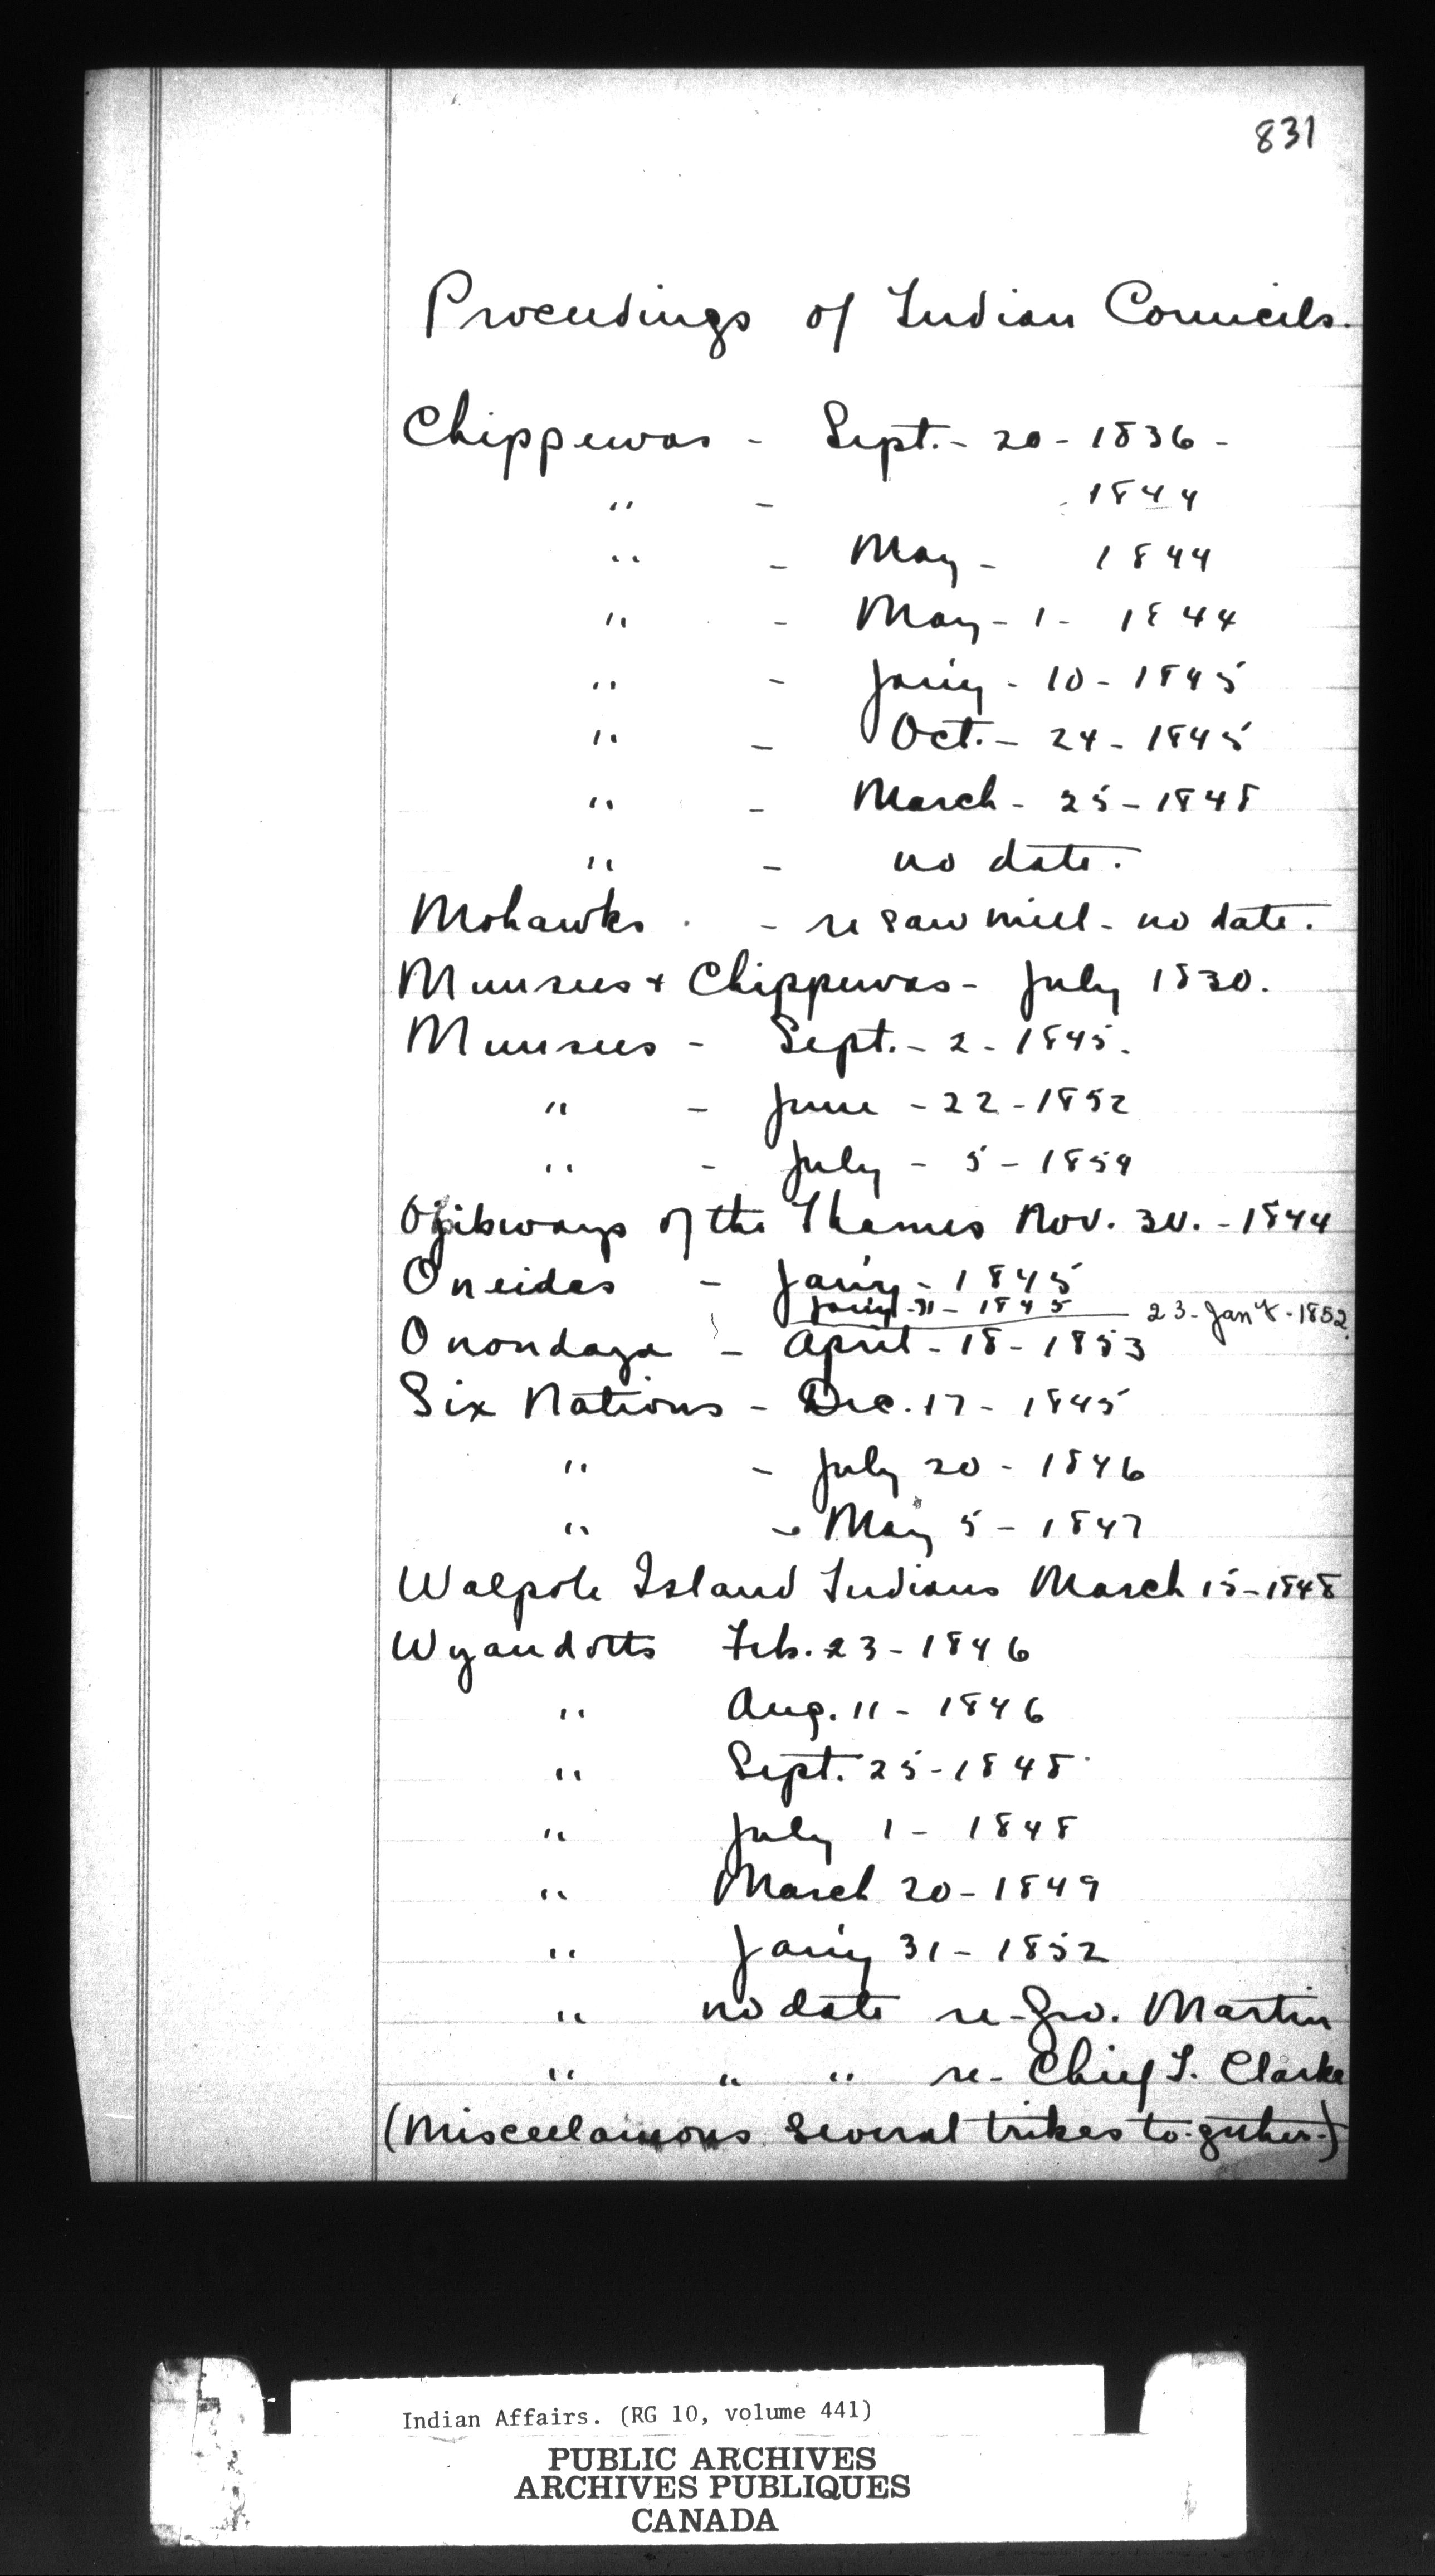 831
Proceedings of Indian Councils.
Chippewas - Sept. - 20 - 1836 -
" - 1844
" - May - 1844
" - May - 1 - 1844
" - Jan'y - 10 - 1845
" - Oct. - 24 - 1845
" - March - 25 - 1848
" - no date.
Mohawks - re saw mill - no date.
Munsees & Chippewas - July 1830.
Munsees - Sept. - 2 - 1845.
" - June - 22 - 1852
" - July - 5 - 1859
Ojibways of the Thames Nov. 30. - 1844
Oneidas - Jan'y - 1845
Jan'y - 31 - 1845 - 23 - Jany - 1852.
Onondaga - April - 18 - 1853
Six Nations - Dec. 17 - 1845
" - July 20 - 1846
" - May 5 - 1847
Walpole Island Indians March 15 - 1848
Wyandotts Feb. 23 - 1846
" Aug. 11 - 1846
" Sept. 25 - 1848
" July 1 - 1848
" March 20 - 1849
" Jan'y 31 - 1852
" no date re - Geo. Martin
" " " re - Chief T. Clarke
(Miscellaineous several tribes to-gether)
Indian Affairs. (RG 10, volume 441)
PUBLIC ARCHIVES
ARCHIVES PUBLIQUES
CANADA